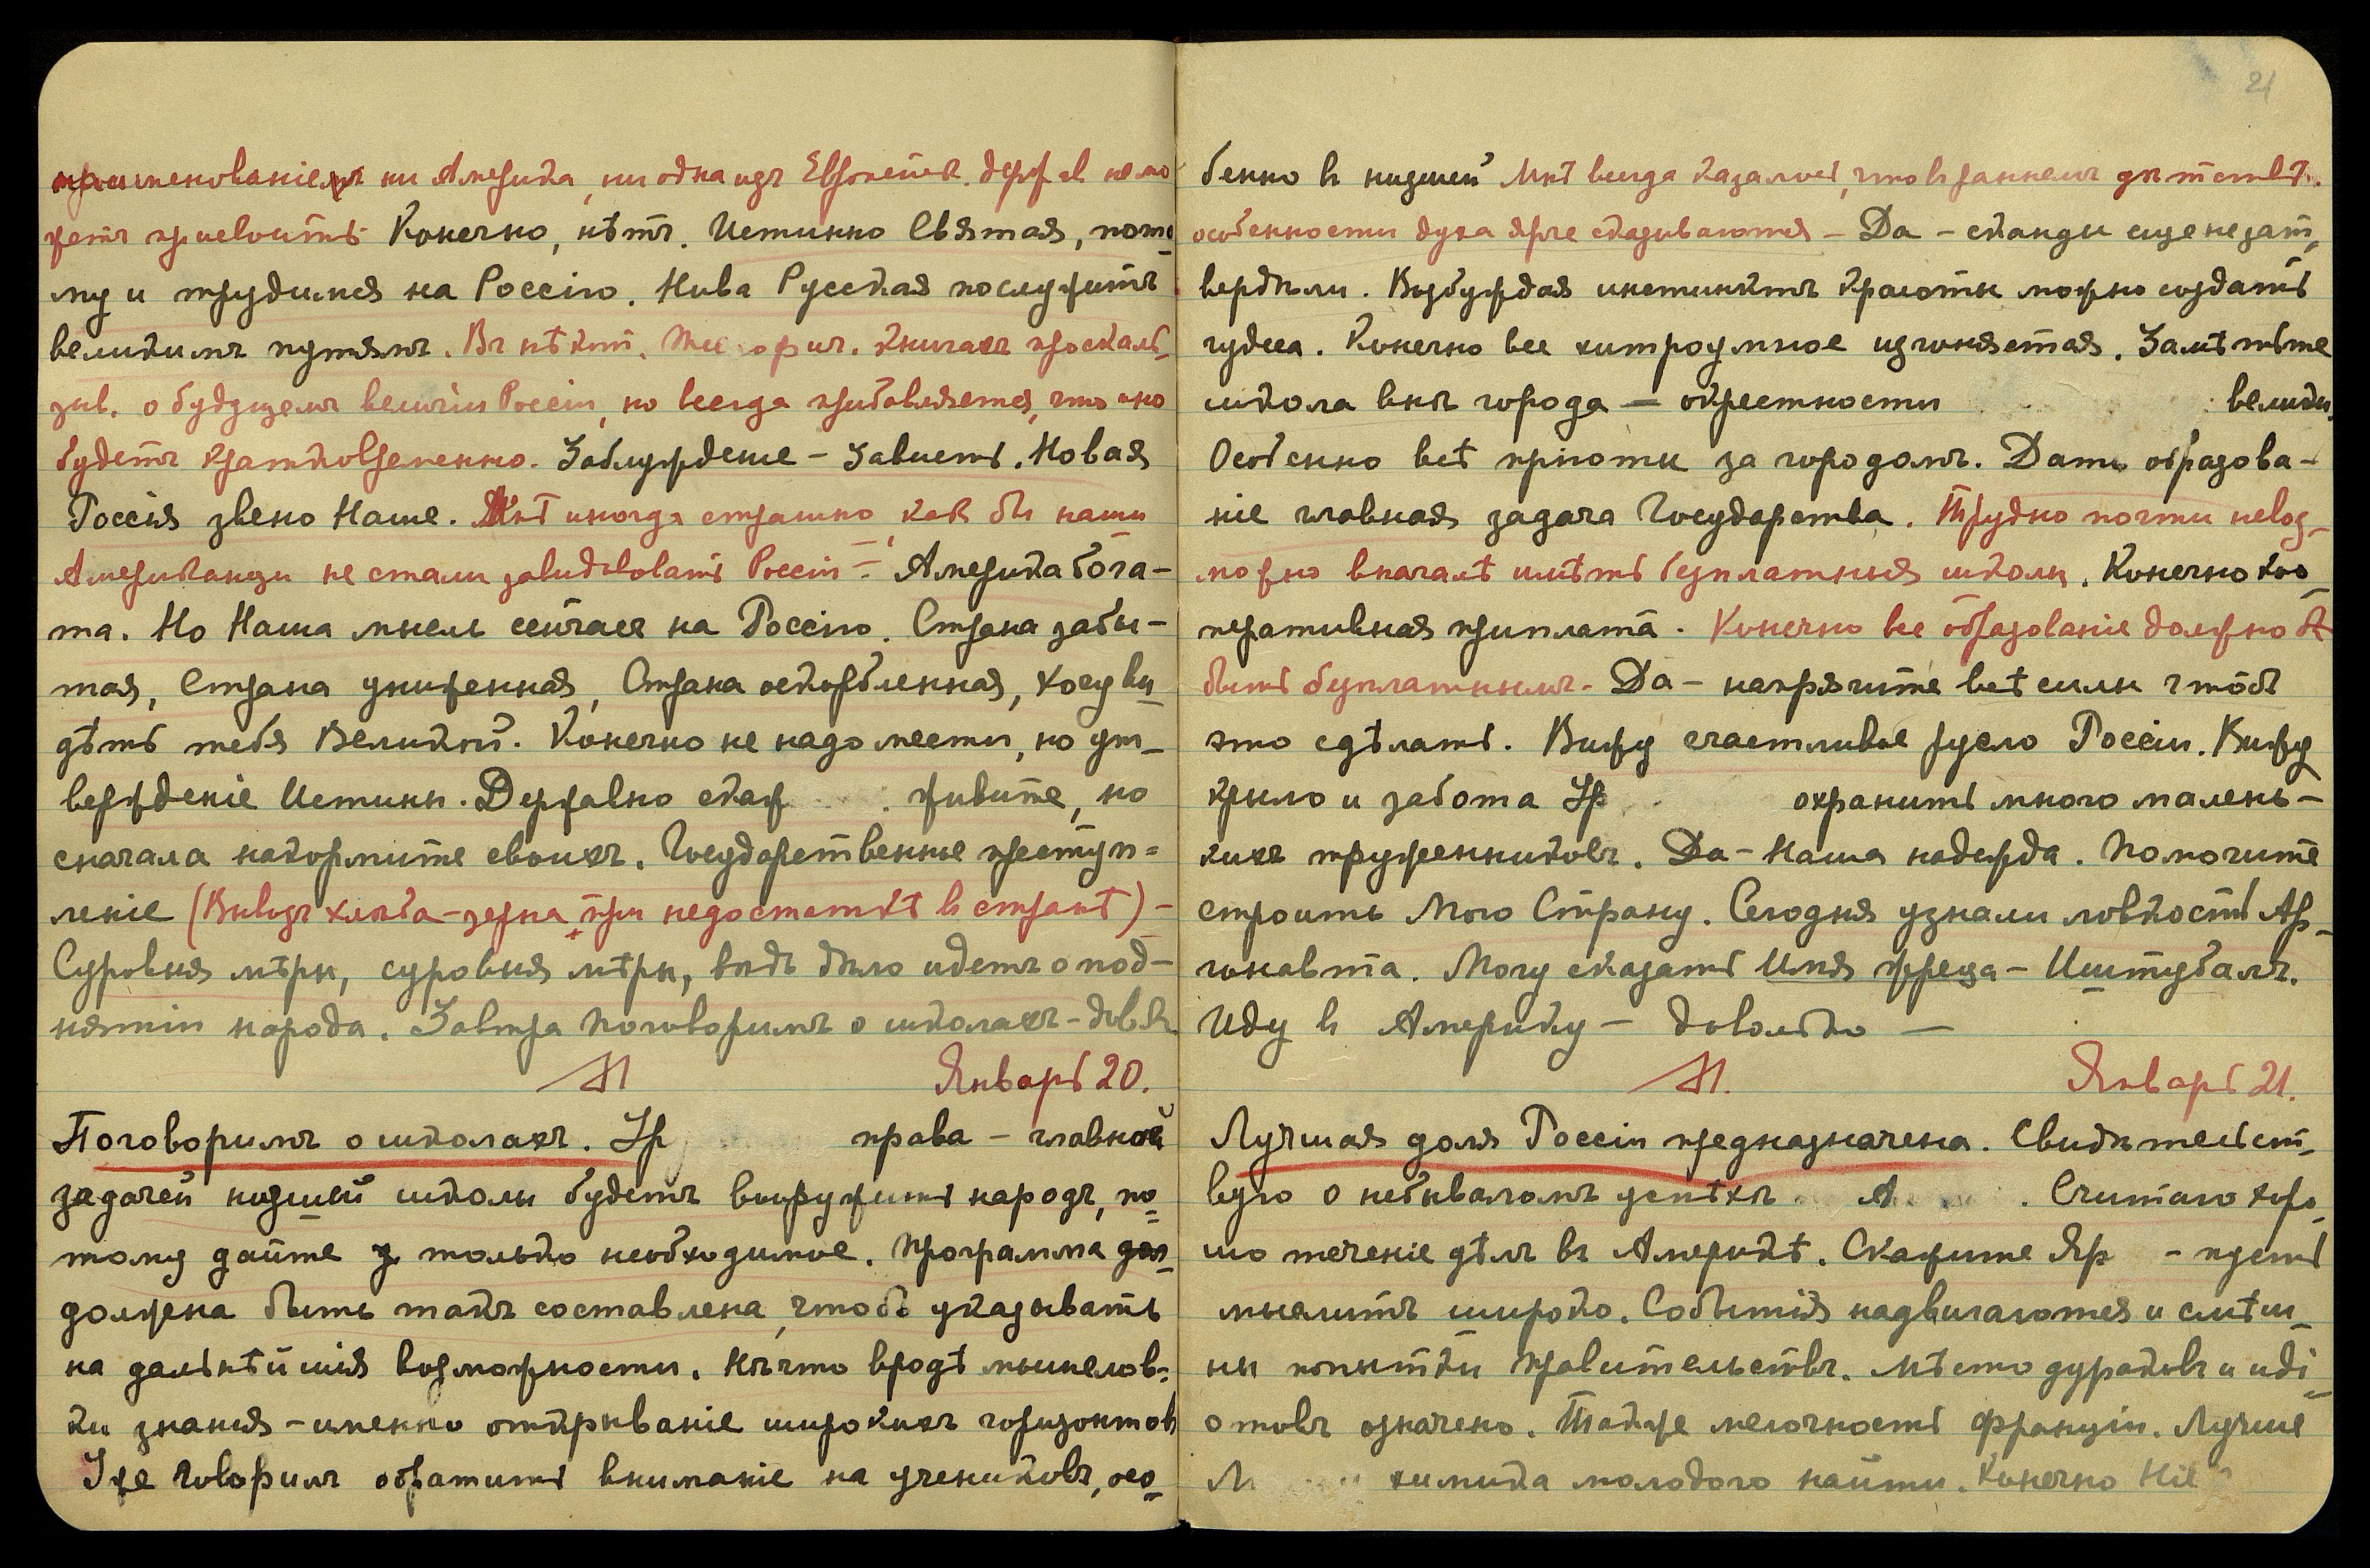 проименованіемъ ни Америка, ни одна изъ Европейск. держ ав не мо
жетъ присвоить. Конечно, нѣтъ. Истинно Святая, пото
му и трудимся на Россію. Нива Русская послужитъ
великимъ путямъ. Въ нѣкот. книгахъ проскаль-
зыв. о будущемъ величіи Россіи, но всегда прибавляется, что оно
будетъ кратковременно. Заблужденіе – зависть. Новая
Россія звено Наше. Мнѣ иногда страшно, как бы наши
Американцы не стали завидовать Россіи – Америка бога-
та. Но Наша мысль сейчасъ на Россію. Страна заби-
тая, Страна униженная, Страна оскорбленная, хочу ви-
дѣть тебя Великой. Конечно не надо мести, но ут-
вержденіе Истины. Державно скаж живите, но
сначала накормите своихъ. Государственное преступ=
леніе (Вывозъ хлѣба-зерна при недостаткѣ в странѣ) –
Суровыя мѣры, суровыя мѣры, вѣдь дѣло идетъ о под-
нятіи народа. Завтра поговоримъ о школахъ –
Январь 20.
Поговоримъ о школахъ. Ур права – главной
задачей низшей школы будетъ вооружить народъ, по=
тому дайте только необходимое. Программа дол-
должена быть такъ составлена, чтобъ указывать
на дальнѣйшія возможности. Нѣчто вродѣ мышелов-
ки знанія – именно открываніе широкихъ горизонтов
Уже говорилъ обратить вниманіе на учениковъ, осо-
21
бенно в низшей Мнѣ всегда казалось, что в раннемъ дѣтствѣ
особенности духа ярче сказываются – Да – сканды еще не зат-
вердѣли. Возбуждая инстинктъ красоты можно создать
чудеса. Конечно все хитроумное изгоняется. Замѣтьте
школа внѣ города – окрестности велики.
Особенно всѣ пріюты за городомъ. Дать образова-
ніе главная задача Государства. Трудно почти невоз-
можно вначалѣ имѣть безплатныя школы. Конечно коо-
перативная приплата. Конечно все образованіе должно б
быть безплатнымъ. Да – напрягите всѣ силы чтобъ
это сдѣлать. Вижу счастливое русло Россіи. Вижу
крыло и забота Ур охранить много малень-
кихъ тружениковъ. Да – Наша надежда. Помогите
строить Мою Страну. Сегодня узнали ловкость Ар-
гонавта. Могу сказать Имя жреца – Иштубалъ.
Иду в Америку – довольно –
Январь 21.
Лучшая доля Россіи предназначена. Свидѣтельст-
вую о небываломъ успѣхѣ А . Считаю хоро-
шо теченіе дѣлъ въ Америкѣ. Скажите Яр – пусть
мыслитъ широко. Событія надвигаются и смѣш-
ны попытки правительствъ. Мѣсто дураковъ и иді=
отовъ означено. Также мелочность Франціи. Лучше
М химика молодого найти. Конечно Ніе